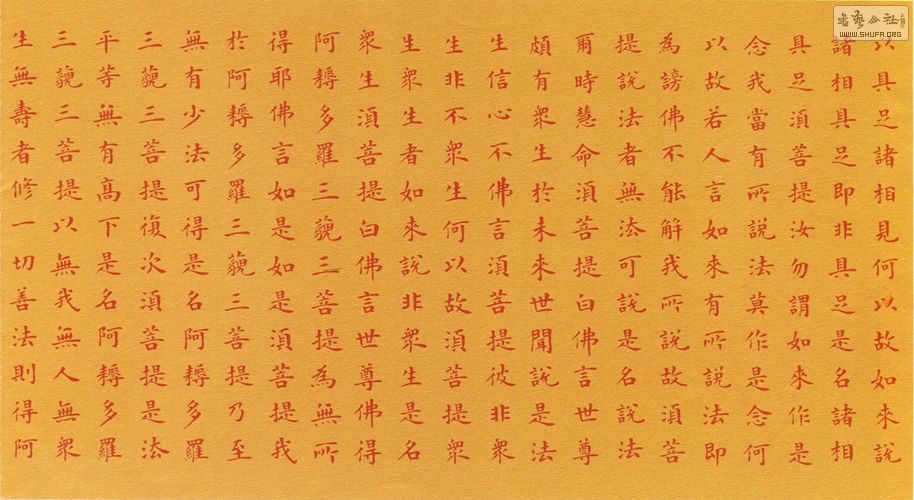 以具足諸相見何以故如來說
諸相具足即非具足是名諸相
具足須菩提汝勿謂如來作是
念我當有所說法莫作是念何
以故若人言如來有所說法即
為謗佛不能解我所說故須菩
提說法者無法可說是名說法
爾時慧命須菩提白佛言世尊
頗有衆生於未來世聞說是法
生信心不佛言須菩提彼非衆
生非不衆生何以故須菩提衆
生衆生者如來說非衆生是名
衆生須菩提白佛言世尊佛得
阿耨多羅三藐三菩提為無所
得耶佛言如是如是須菩提我
於阿耨多羅三藐三菩提乃至
無有少法可得是名阿耨多羅
三藐三菩提復次須菩提是法
平等無有高下是名阿耨多羅
三藐三菩提以無我無人無衆
生無壽者修一切善法則得阿
書藝公社
WWW.SHUFA.ORG